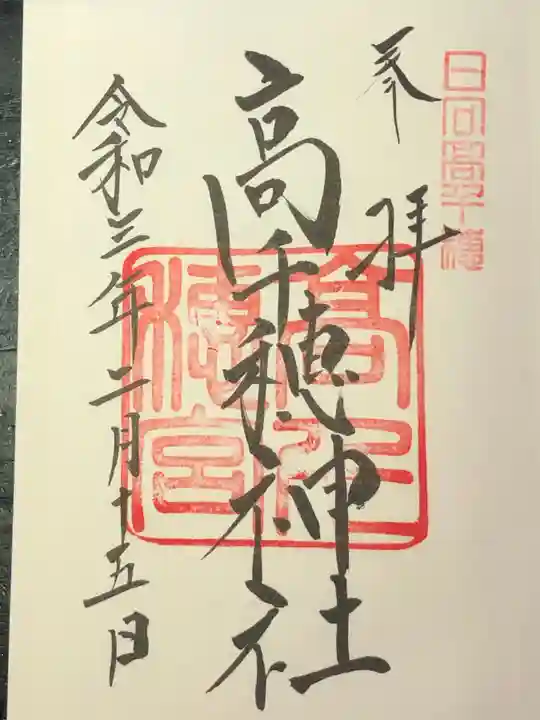 日向高千穂
奉拝
高千穂神社
高千穂宮
令和三年二月十五日